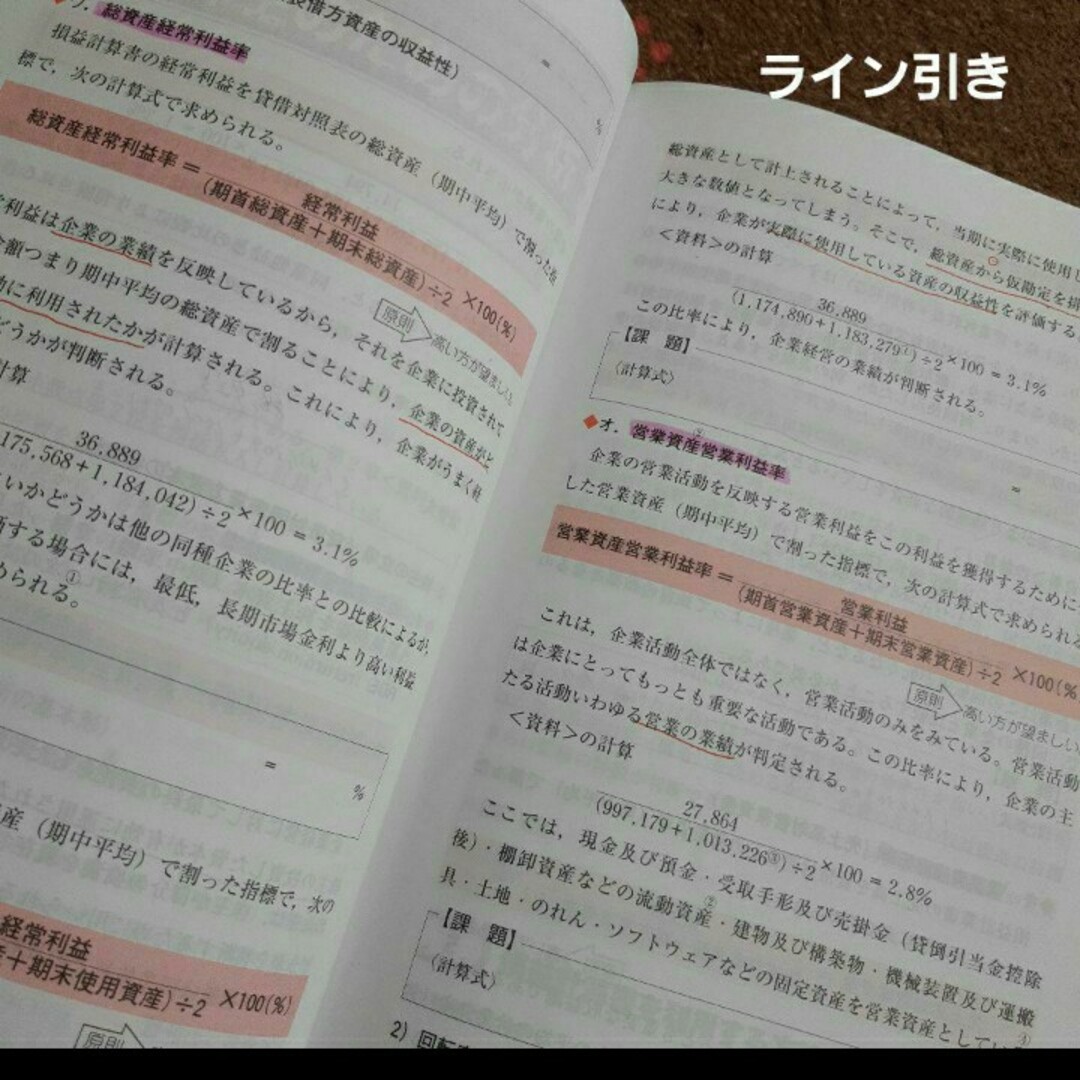 ライン引き
借方資産の収益性)
総資産経常利益率
損益計算書の経常利益を貸借対照表の総資産（期中平均）で割った指
標で，次の計算式で求められる。
総資産経常利益率＝
経常利益
(期首総資産＋期末総資産)÷2
×100(%)
原則
高い方が望ましい
利益は企業の業績を反映しているから，それを企業に投資されて
金額つまり期中平均の総資産で割ることにより，企業の資産がど
に利用されたかが計算される。これにより，企業がうまく経
どうかが判断される。
計算
36,889
175,568＋1,184,042)÷2
×100＝3.1%
いかどうかは他の同種企業の比率との比較によるが，
する場合には，最低，長期市場金利より高い利益
められる。
①
＝
%
産（期中平均）で割った指標で，次の
経常利益
＋期末使用資産)÷2
×100(%)
原則
総資産として計上されることによって，当期に実際に使用し
大きな数値となってしまう。そこで，総資産から仮勘定を排
により，企業が実際に使用している資産の収益性を評価する
＜資料＞の計算
36,889
(1,174,890＋1,183,279)÷2
×100＝3.1%
この比率により，企業経営の業績が判断される。
【課 題】
〈計算式〉
＝
◆オ．営業資産営業利益率
企業の営業活動を反映する営業利益をこの利益を獲得するために
した営業資産（期中平均）で割った指標で，次の計算式で求められる
営業資産営業利益率＝
営業利益
(期首営業資産＋期末営業資産)÷2
×100(%)
原則
高い方が望ましい
これは，企業活動全体ではなく，営業活動のみをみている。営業活動
は企業にとってもっとも重要な活動である。この比率により，企業の主
たる活動いわゆる営業の業績が判定される。
＜資料＞の計算
27,864
(997,179＋1,013,226③)÷2
×100＝2.8%
ここでは，現金及び預金・受取手形及び売掛金（貸倒引当金控除
後）・棚卸資産などの流動資産・建物及び構築物・機械装置及び運搬
具・土地・のれん・ソフトウェアなどの固定資産を営業資産としてい
【課 題】
〈計算式〉
2）回転